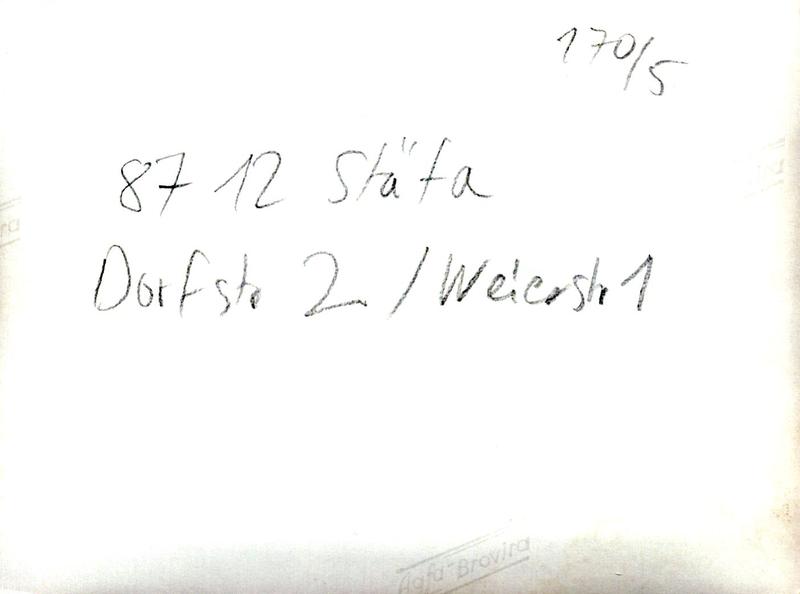 170/5
8712 Stäfa
Dorfstr 2 / Weierstr 1
Agfa-Brovira